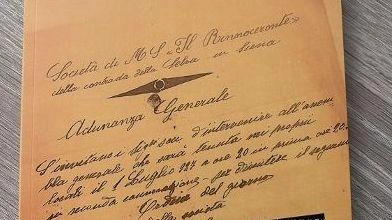 Società di M S "Il Rinnoceronte"
della contrada della Selva in Siena
Adunanza Generale
S'invitano i Sigg soci d'intervenire all'assem
blea generale che sarà tenuta nei propri
locali il 1 Luglio 927 a ore 20 in prima ore 20.
in seconda convocazione - per discutere il seguente
Ordine del giorno